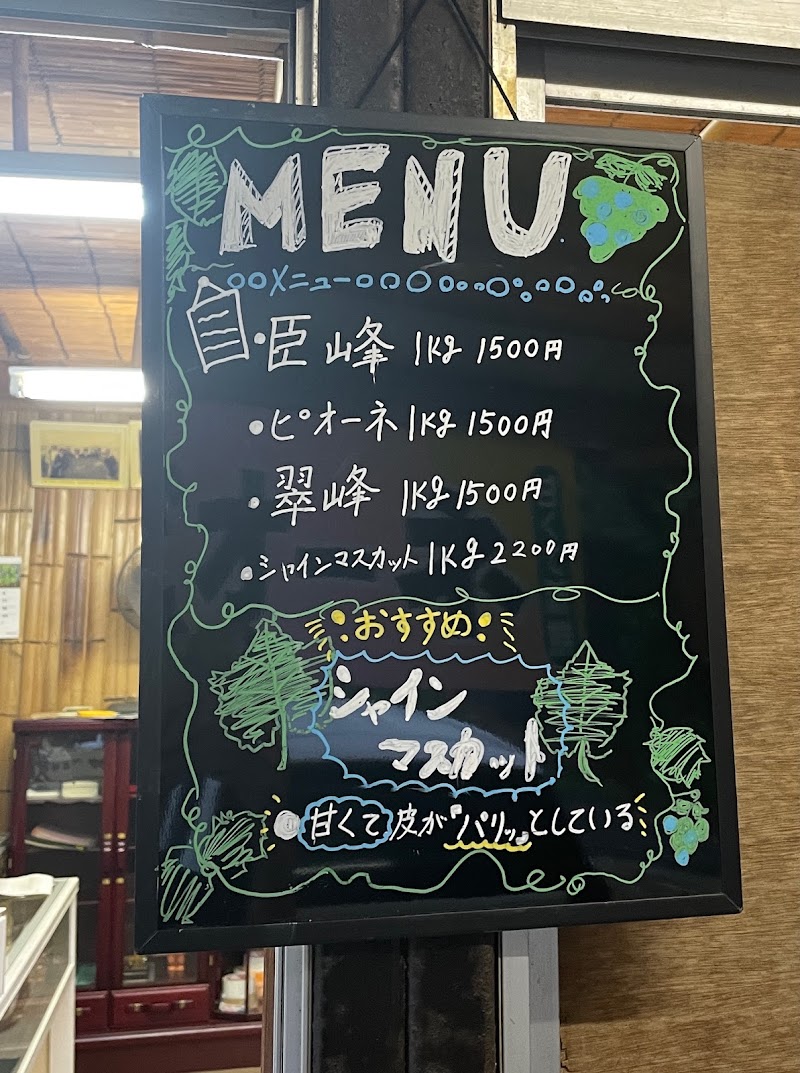 MENU
メニュー
・臣峰 1Kg 1500円
・ピオーネ 1Kg 1500円
・翠峰 1Kg 1500円
・シャインマスカット 1Kg 2200円
おすすめ
シャイン
マスカット
甘くて皮が『パリッ』としている